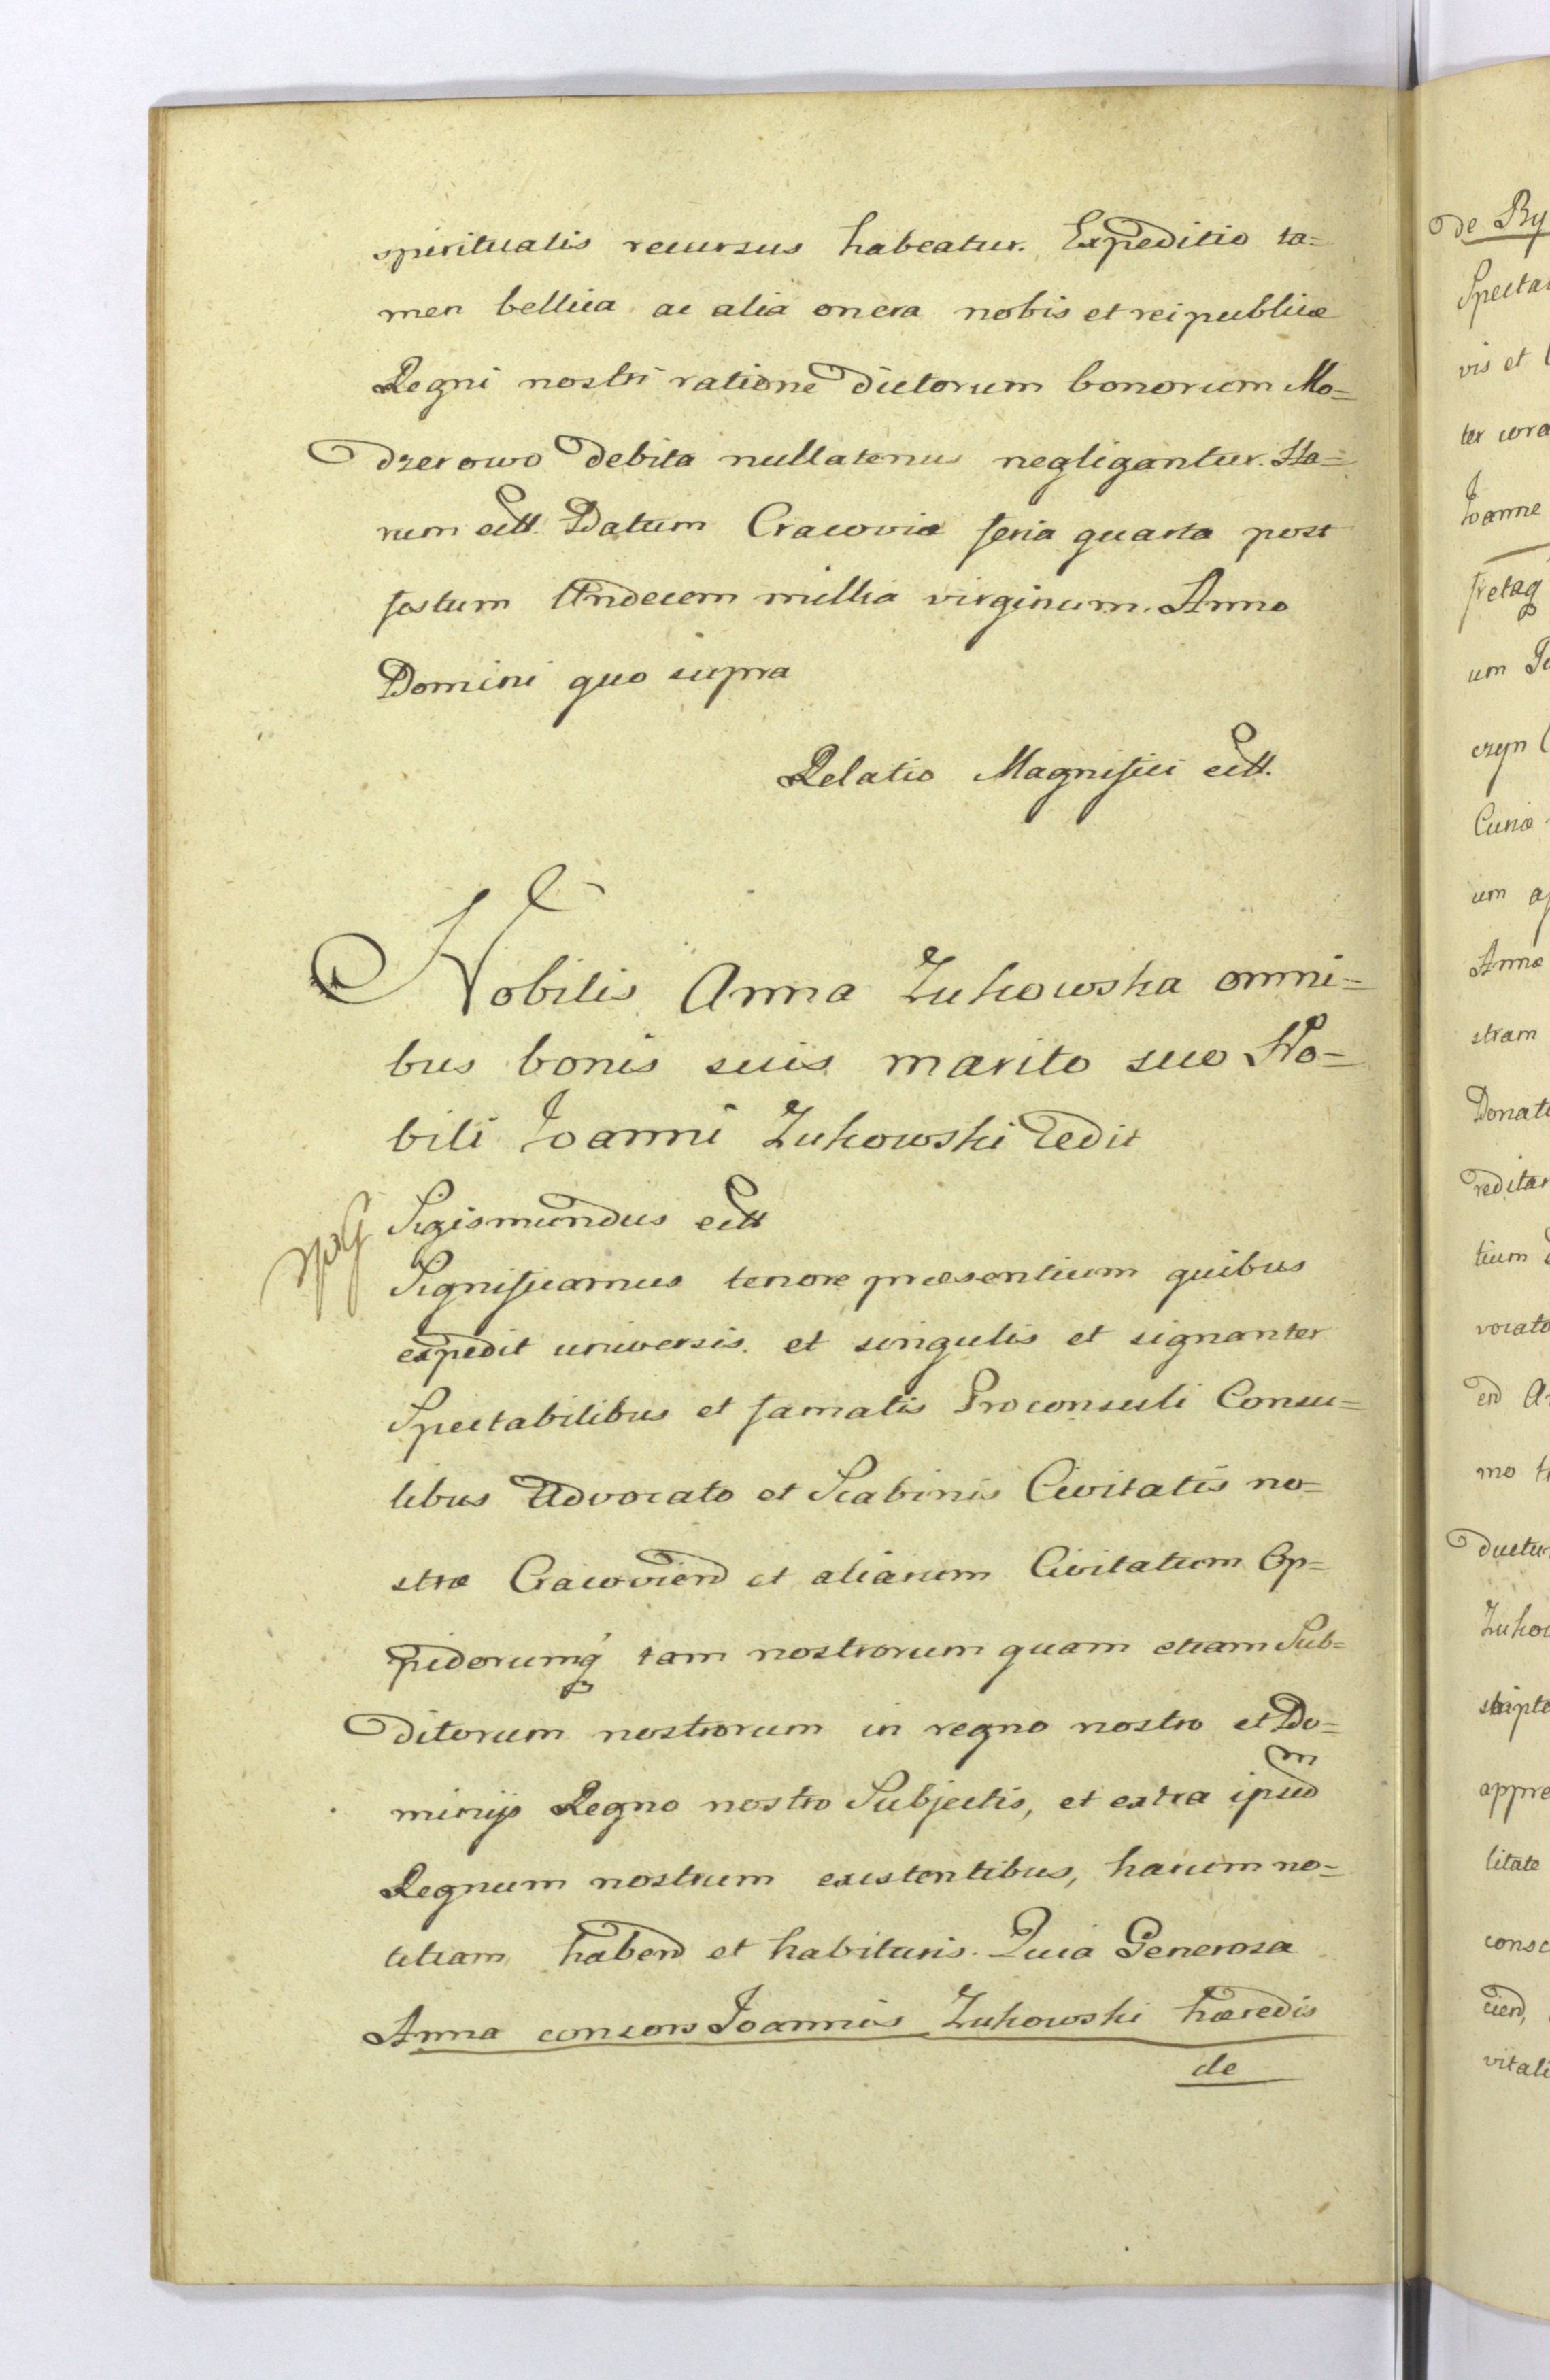 spiritualis recursus habeatur. Expeditio ta=
men bellica ac alia onera nobis et reipublicæ
Regni nostri ratione dictorum bonorum Mo=
drzerowo debita nullatenus negligantur. Ha=
rum ectt. Datum Cracoviæ feria quarta post
festum Undecem millia virginum. Anno
Domini quo supra
Relatio Magnifici ectt.
Nobilis Anna Zukowska omni=
bus bonis suis marito suo No=
bili Joanni Zukowski cedit
Sigismundus ectt
Significamus tenore præsentium quibus
expedit universis et singulis et signanter
Spectabilibus et famatis Proconsuli Consu=
libus Advocato et Scabinis Civitatis no=
stræ Cracovien et aliarum Civitatum Op=
pidorumq tam nostrorum quam etiam Sub=
ditorum nostrorum in regno nostro et Do=
minijs Regno nostro Subjectis, et extra ipsum
Regnum nostrum existentibus, harum no=
titiam haben et habituris. Quia Generosa
Anna consors Joannis Zukowski hæredis
de
de By
Specta
vis et
ter cora
Joanne
fretaq
um
czyn
Curiæ
um
Annæ
stram
Donat
redita
tium
vocato
en
mo
ductu
Zuko
scripto
appre
litate
consc
cien,
vitali